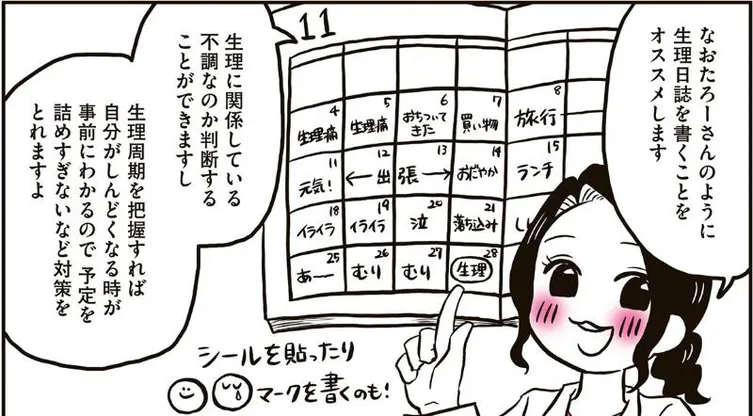 なおたろーさんのように
生理日誌を書くことを
オススメします
生理に関係している
不調なのか判断する
ことができますし
生理周期を把握すれば
自分がしんどくなる時が
事前にわかるので 予定を
詰めすぎないなど対策を
とれますよ
11
4 5 6 7 8
生理痛 生理痛 おちついてきた 買い物 旅行
11 12 13 14 15
元気! ←出張→ おだやか ランチ
18 19 20 21
イライラ イライラ 泣 落ち込み
25 26 27 28
あー むり むり 生理
シールを貼ったり
マークを書くのも!